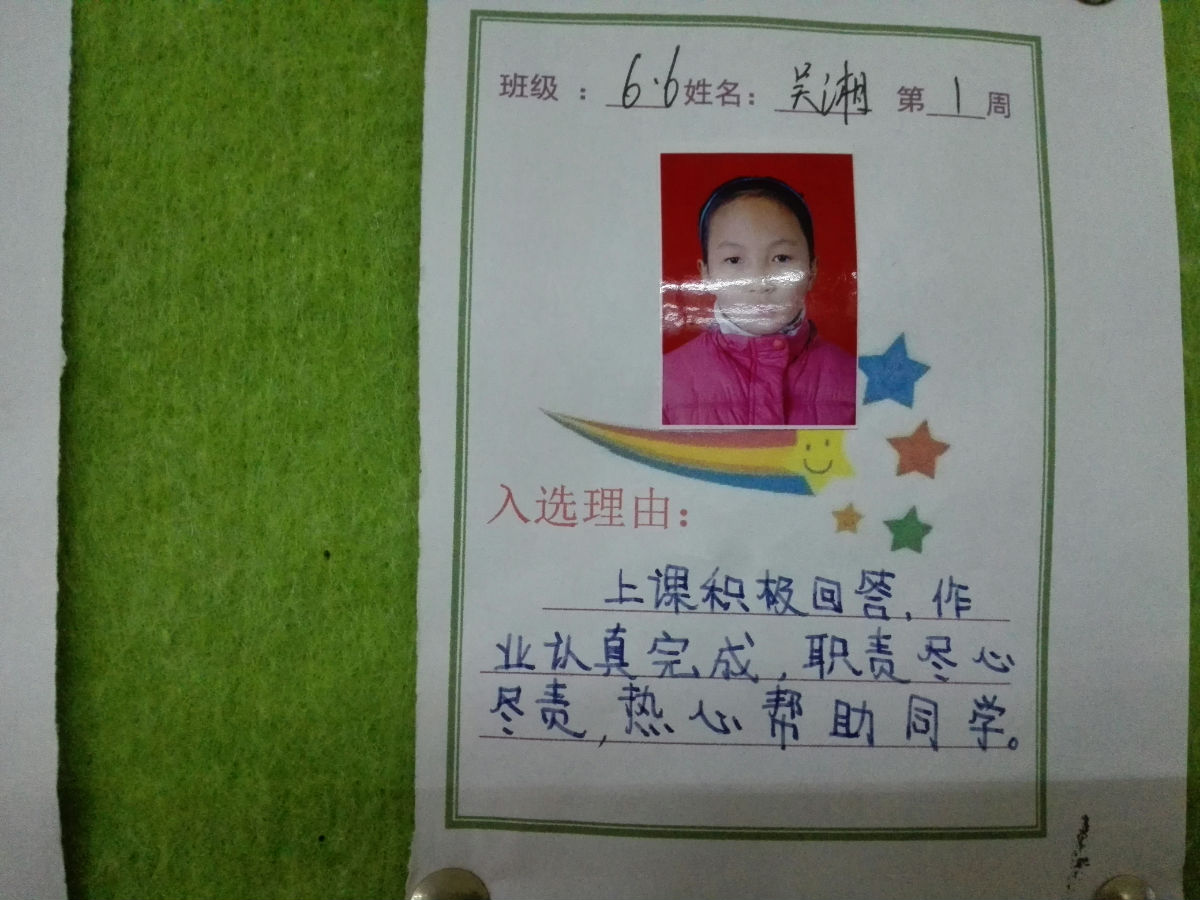 班级：6.6姓名：吴湘 第1周
入选理由：
上课积极回答,作
业认真完成,职责尽心
尽责,热心帮助同学。